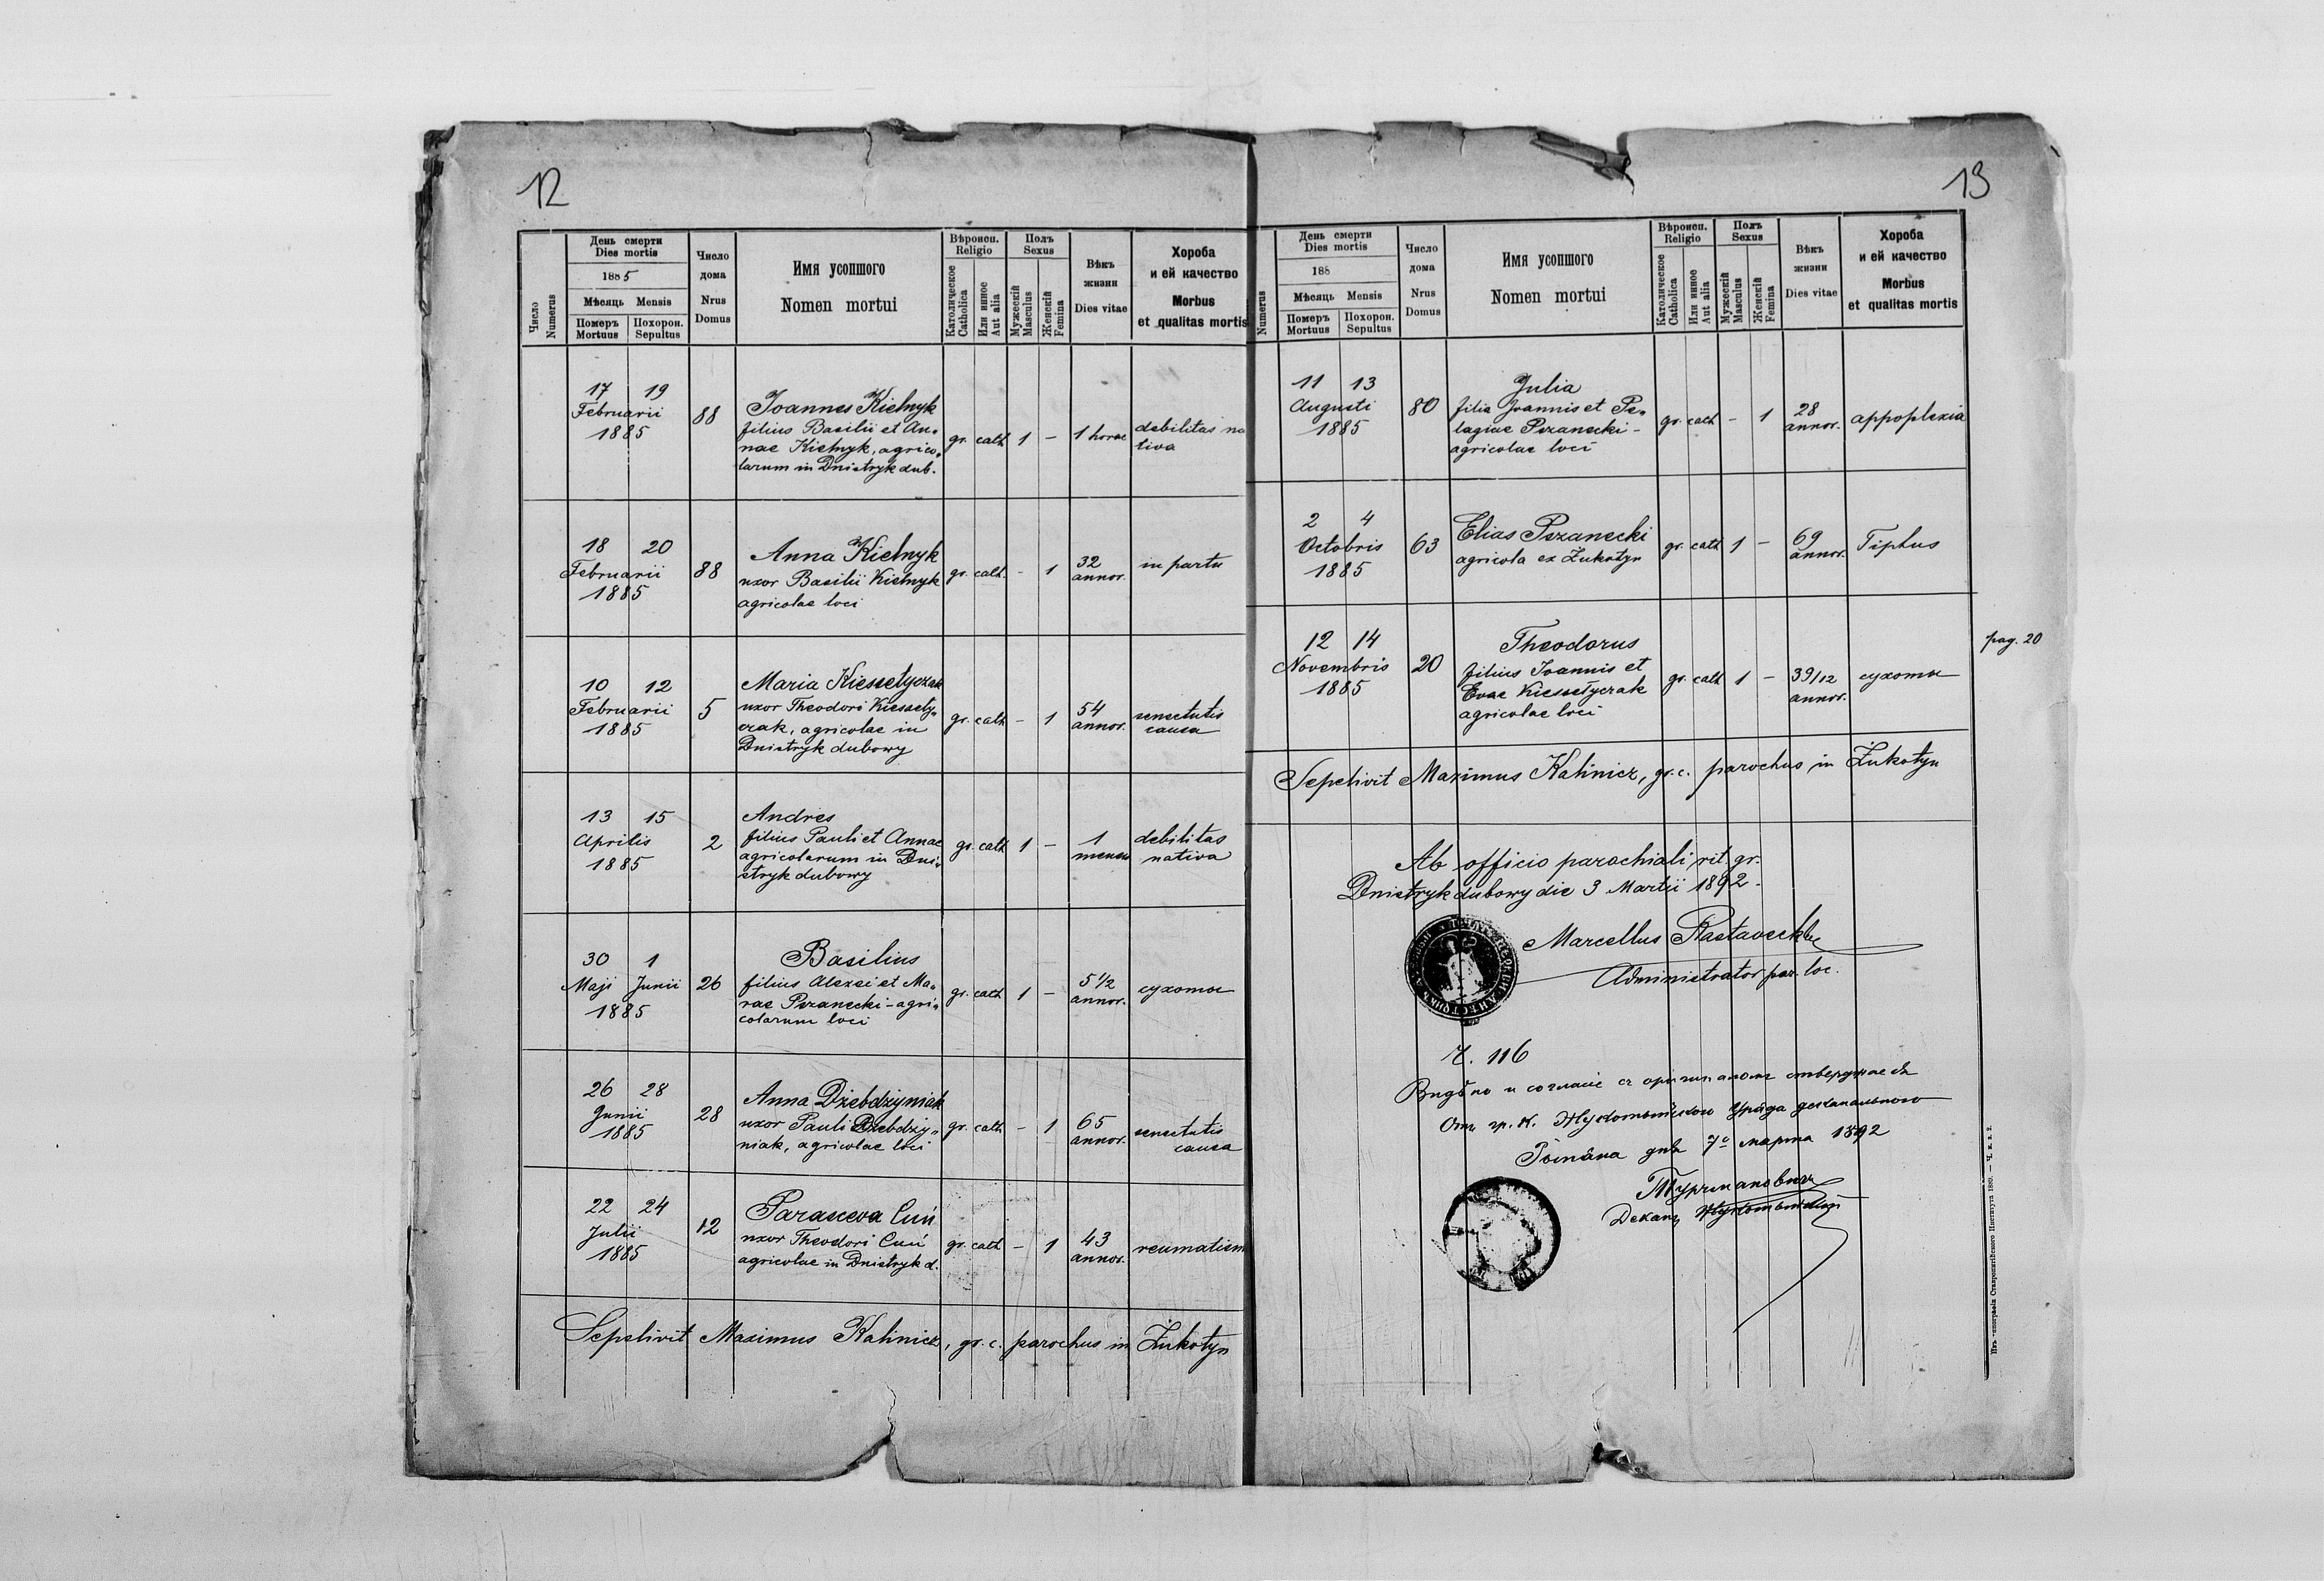 12
День смерти
Dies mortis
1885
Мѣсяць Mensis
Померъ Похорон.
Mortuus Sepultus
Число
Numerus
Число
дома
Nrus
Domus
Имя усопшого
Nomen mortui
Вѣроисп.
Religio
Католическое
Catholica
Или инное
Aut alia
Полъ
Sexus
Мужескій
Masculus
Женскій
Femina
Вѣкъ
жизни
Dies vitae
Хороба
и ей качество
Morbus
et qualitas mortis
17 19
Februarii
1885
88
Joannes Kielnyk
filius Basilii et An„
nae Kielnyk, agrico„
larum in Dnistryk dub.
gr. cath 1 – 1 horae
debilitas na
tiva
18 20
Februarii
1885
88
Anna Kielnyk
uxor Basilii Kielnyk
agricolae loci
gr. cath. - 1
32
annor.
in partu
10 12
Februarii
1885
5
Maria Kiessetyczak
uxor Theodori Kiessety„
czak, agricolae in
Dnistryk dubowy
gr. cath – 1
54
annor.
senectutis
causa
13 15
Aprilis
1885
2
Andres
filius Pauli et Annae
agricolarum in Dni„
stryk dubowy
gr. cath 1 –
1
mensis
debilitas
nativa
30 1
Maji Junii
1885
26
Basilius
filius Alexei et Ma„
rae Pszanecki – agri„
colarum loci
gr. cath 1 –
5 1/2
annor.
сухоты
26 28
Junii
1885
28
Anna Dżebdżyniak
uxor Pauli Dżebdży„
niak, agricolae loci
gr. cath – 1
65
annor.
senectutis
causa
22 24
Julii
1885
12
Parasceva Cuń
uxor Theodori Cuń
agricolae in Dnistryk d.
gr. cath – 1
43
annor.
reumatism
Sepelivit Maximus Kalinicz, gr. c. parochus in Żukotyn
13
День смерти
Dies mortis
188
Мѣсяць Mensis
Померъ Похорон.
Mortuus Sepultus
Numerus
Число
дома
Nrus
Domus
Имя усопшого
Nomen mortui
Вѣроисп.
Religio
Католическое
Catholica
Или инное
Aut alia
Полъ
Sexus
Мужескій
Masculus
Женскій
Femina
Вѣкъ
жизни
Dies vitae
Хороба
и ей качество
Morbus
et qualitas mortis
11 13
Augusti
1885
80
Julia
filia Joannis et Pe„
lagiae Pszanecki –
agricolae loci
gr. cath – 1
28
annor.
appoplexia
2 4
Octobris
1885
63
Elias Pszanecki
agricola ex Żukotyn
gr. cath 1 –
69
annor.
Tiphus
12 14
Novembris
1885
20
Theodorus
filius Joannis et
Evae Kiessetyczak
agricolae loci
gr. cath 1 –
3 9/12
annor.
сухоты
pag. 20
Sepelivit Maximus Kalinicz, gr. c. parochus in Żukotyn
Ab officio parochiali rit. gr.
Dnistryk dubowy die 3 Martii 1892.
Marcellus
Administrator par. loc.
Ч. 116
Видѣно и согласіе съ оригиналомъ стверджаєся
Отъ гр. к. Жукотынского Уряда деканального
днѣ 7о марта 1892
Деканъ Жукотынскій